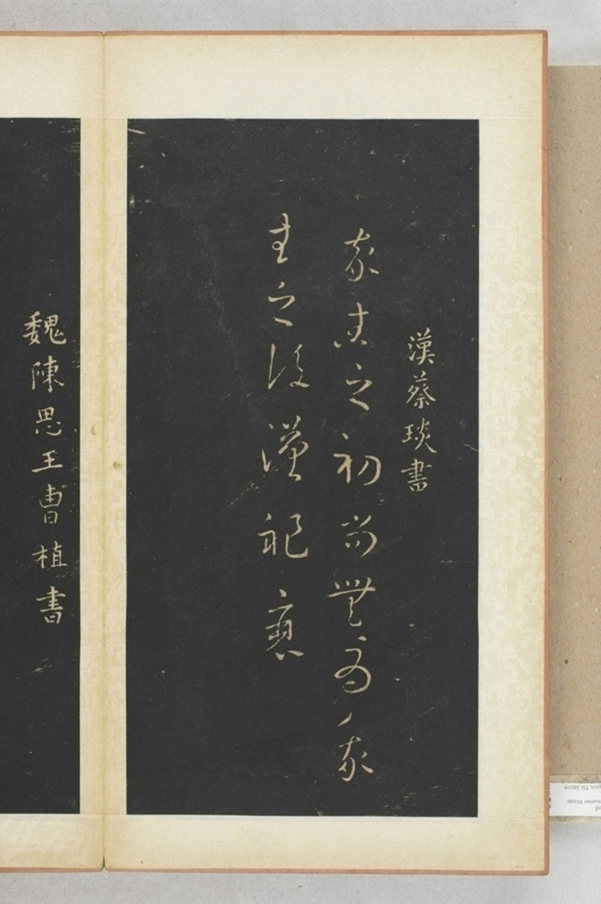 漢蔡琰書
我生之初尚無為我
生之後漢祚衰
魏陳思王曹植書